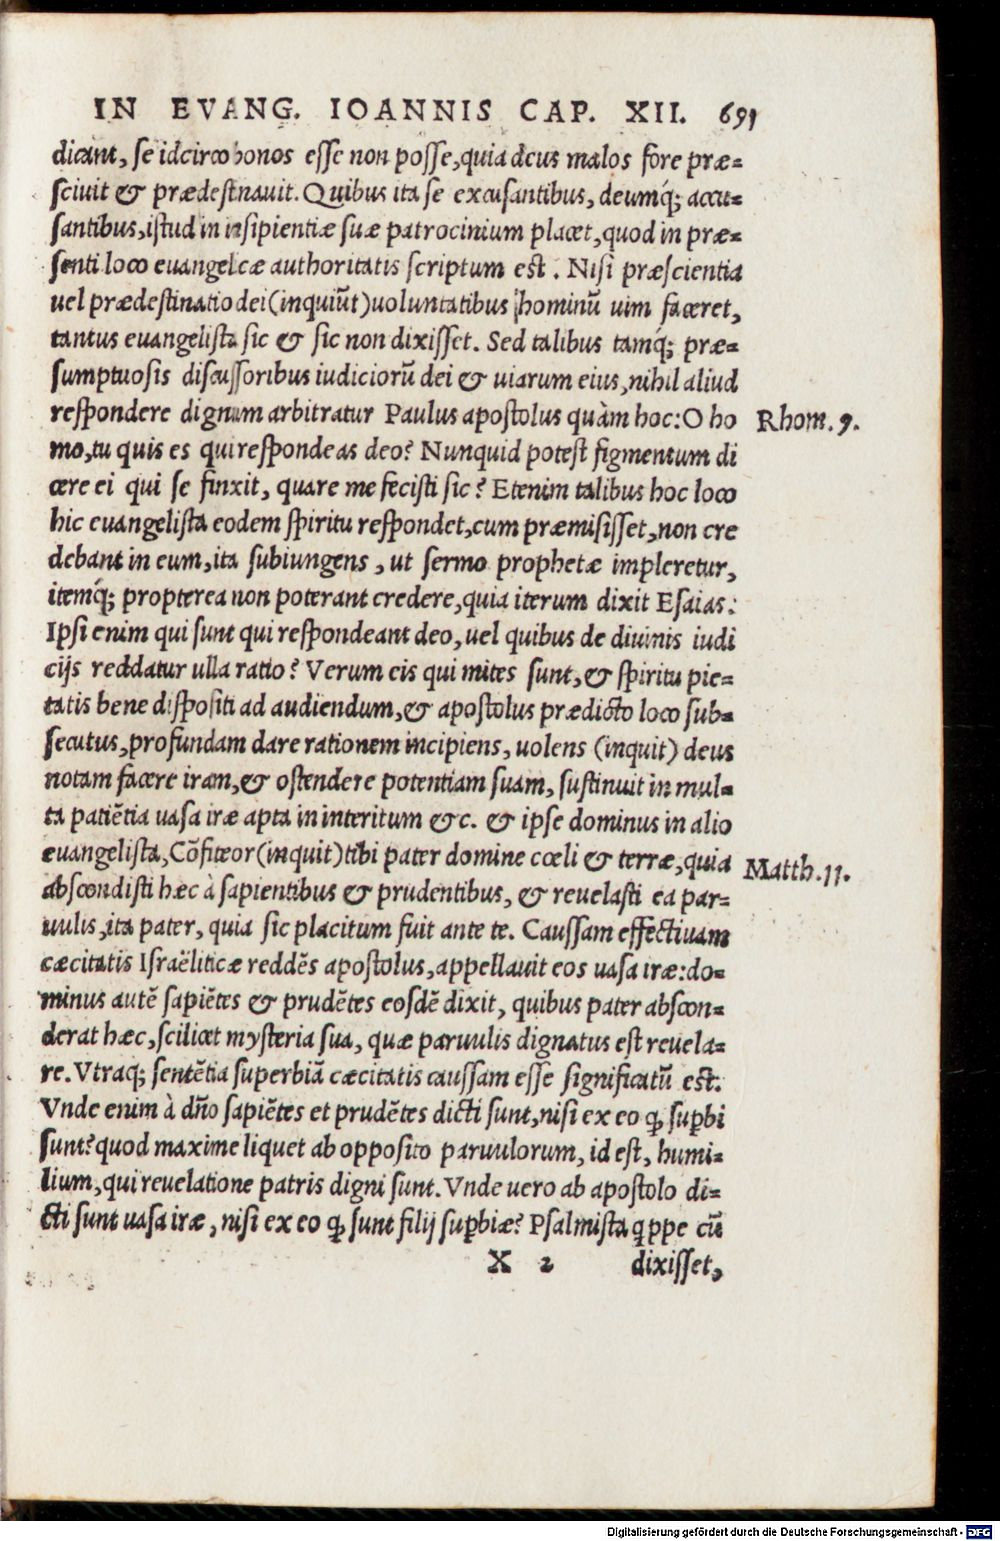 IN EVANG. IOANNIS CAP. XII. 691
dicant, se idcirco bonos esse non posse, quia deus malos fore præ-
sciuit & prædestinauit. Quibus ita se excusantibus, deumq́; accu-
santibus, istud in insipientiæ suæ patrocinium placet, quod in præ-
senti loco euangelicæ authoritatis scriptum est. Nisi præscientia
uel prædestinatio dei (inquiūt) uoluntatibus hominū uim faceret,
tantus euangelista sic & sic non dixisset. Sed talibus tamq́; præ-
sumptuosis discussoribus iudiciorū dei & uiarum eius, nihil aliud
respondere dignum arbitratur Paulus apostolus quàm hoc: O ho
Rhom. 9.
mo, tu quis es qui respondeas deo? Nunquid potest figmentum di
cere ei qui se finxit, quare me fecisti sic? Etenim talibus hoc loco
hic euangelista eodem spiritu respondet, cum præmisisset, non cre
debant in eum, ita subiungens, ut sermo prophetæ impleretur,
itemq́; propterea non poterant credere, quia iterum dixit Esaias.
Ipsi enim qui sunt qui respondeant deo, uel quibus de diuinis iudi
cijs reddatur ulla ratio? Verum eis qui mites sunt, & spiritu pie-
tatis bene dispositi ad audiendum, & apostolus prædicto loco sub-
secutus, profundam dare rationem incipiens, uolens (inquit) deus
notam facere iram, & ostendere potentiam suam, sustinuit in mul-
ta patiētia uasa iræ apta in interitum &c. & ipse dominus in alio
euangelista, Cōfiteor (inquit) tibi pater domine cœli & terræ, quia
Matth. 11.
abscondisti hæc à sapientibus & prudentibus, & reuelasti ea par-
uulis, ita pater, quia sic placitum fuit ante te. Caussam effectiuam
cæcitatis Israëliticæ reddēs apostolus, appellauit eos uasa iræ: do-
minus autē sapiētes & prudētes eosdē dixit, quibus pater abscon-
derat hæc, scilicet mysteria sua, quæ paruulis dignatus est reuela-
re. Vtraq; sentētia superbiā cæcitatis caussam esse significatū est.
Vnde enim à dño sapiētes et prudētes dicti sunt, nisi ex eo ꝙ suꝑbi
sunt? quod maxime liquet ab opposito paruulorum, id est, humi-
lium, qui reuelatione patris digni sunt. Vnde uero ab apostolo di-
cti sunt uasa iræ, nisi ex eo ꝙ sunt filij suꝑbiæ? Psalmista qppe cū
X 2 dixisset,
Digitalisierung gefördert durch die Deutsche Forschungsgemeinschaft - DFG